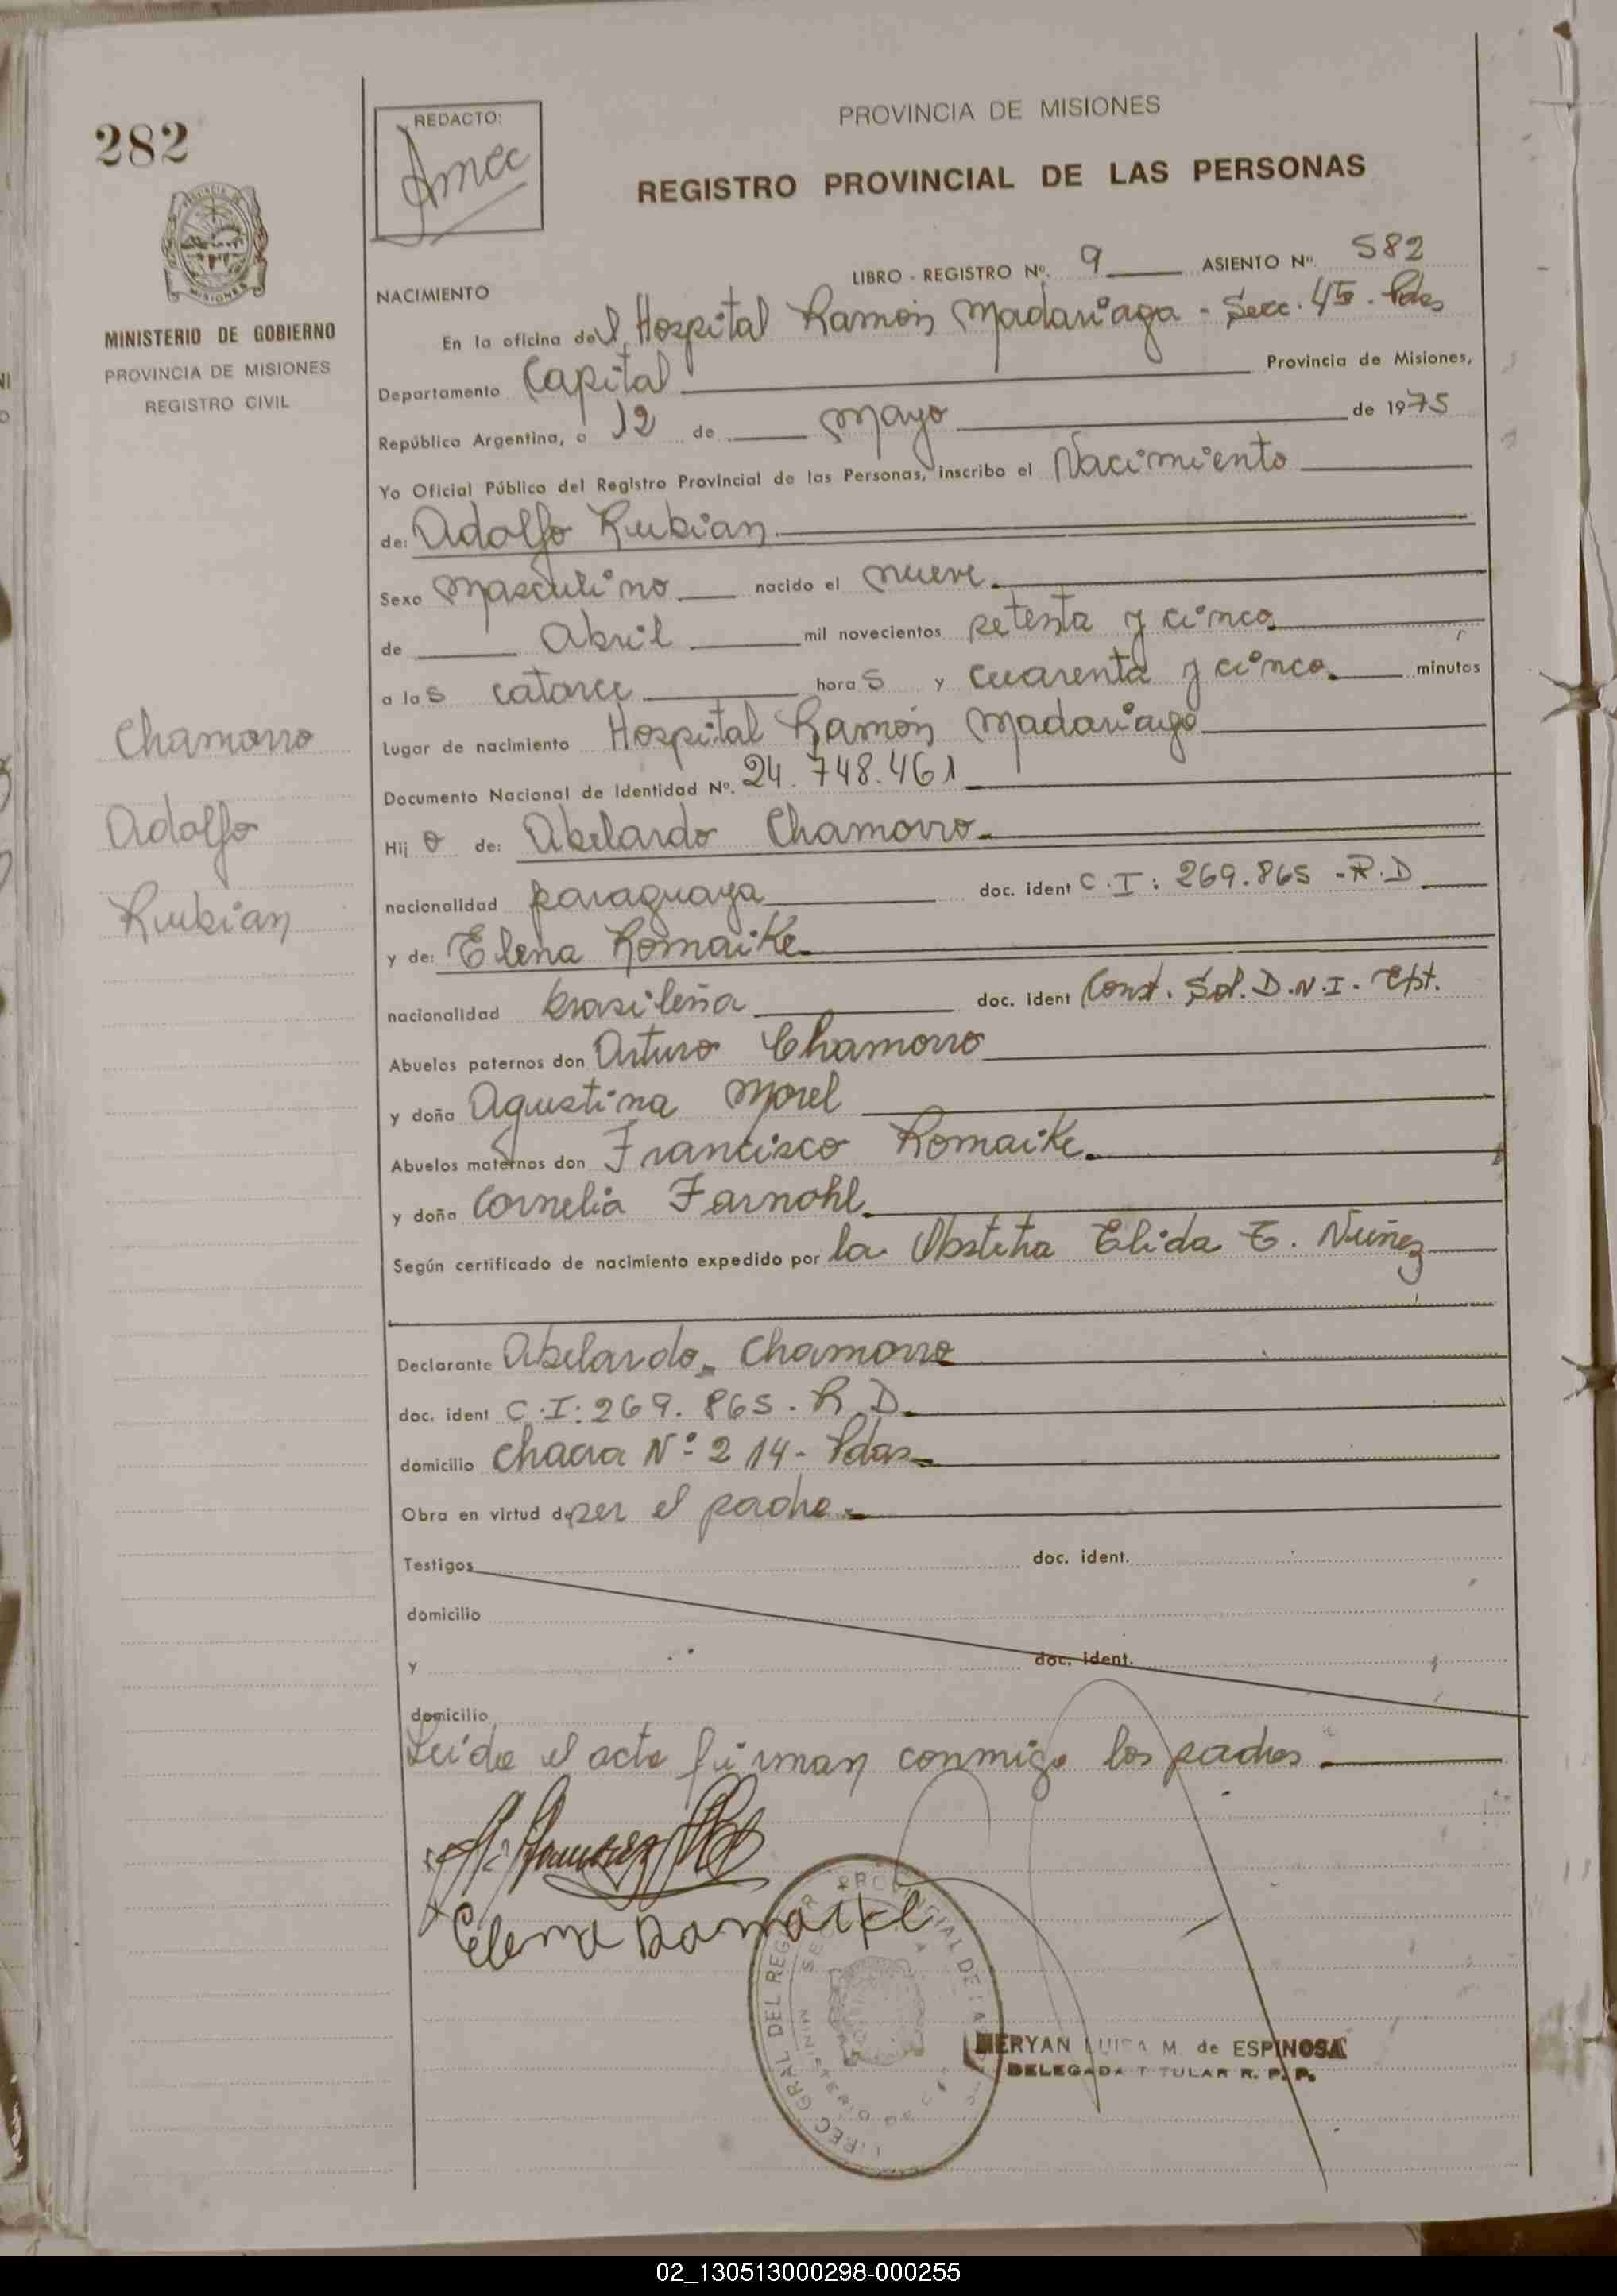 282
REDACTO:
PROVINCIA DE MISIONES
REGISTRO PROVINCIAL DE LAS PERSONAS
MISIONES
MINISTERIO DE GOBIERNO
PROVINCIA DE MISIONES
REGISTRO CIVIL
LIBRO - REGISTRO Nº. 9 ASIENTO Nº 582
NACIMIENTO
En la oficina del Hospital Ramón Madariaga - Secc. 4ta. Pdas
Departamento Capital Provincia de Misiones,
República Argentina, a 12 de Mayo de 1975
Yo Oficial Público del Registro Provincial de las Personas, inscribo el Nacimiento
de: Adolfo Rubian
Sexo Masculino nacido el nueve
de Abril mil novecientos setenta y cinco
a las catorce horas y cuarenta y cinco minutos
Lugar de nacimiento Hospital Ramón Madariaga
Documento Nacional de Identidad Nº. 24.748.461
Hijo de: Abelardo Chamorro
nacionalidad paraguaya doc. ident C.I: 269.865 - R.D
y de: Elena Romaike
nacionalidad brasileña doc. ident Const. Sol. D.N.I. Ext.
Abuelos paternos don Arturo Chamorro
y doña Agustina Morel
Abuelos maternos don Francisco Romaike
y doña Cornelia Farnohl
Según certificado de nacimiento expedido por la Obstetra Elida E. Nuñez
Declarante Abelardo Chamorro
doc. ident C.I: 269.865. R.D.
domicilio Chacra Nº 214 - Pdas
Obra en virtud de ser el padre
Testigos doc. ident.
domicilio
y doc. ident.
domicilio
Leida el acta firman conmigo los padres
Chamorro
Adolfo
Rubian
Elena Romaike
DIREC GRAL DEL REGISTR PROVINCIAL DE LAS
MERYAN LUISA M. de ESPINOSA
DELEGADA TITULAR R. P. P.
02_130513000298-000255